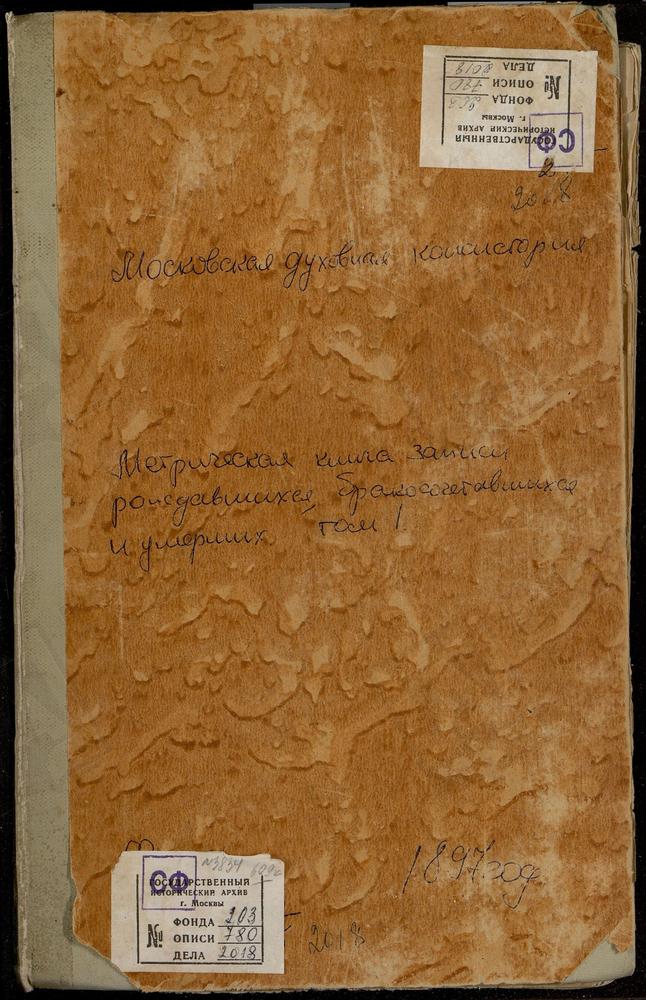 СФ
ГОСУДАРСТВЕННЫЙ
ИСТОРИЧЕСКИЙ АРХИВ
г. Москвы
№
ФОНДА 203
ОПИСИ 780
ДЕЛА 2018
2018
Московская духовная консистория
Метрическая книга записи
рождавшихся, бракосочетавшихся
и умерших том I
1897 год
СФ
№3834
ГОСУДАРСТВЕННЫЙ
ИСТОРИЧЕСКИЙ АРХИВ
г. Москвы
№
ФОНДА 203
ОПИСИ 780
ДЕЛА 2018
2018